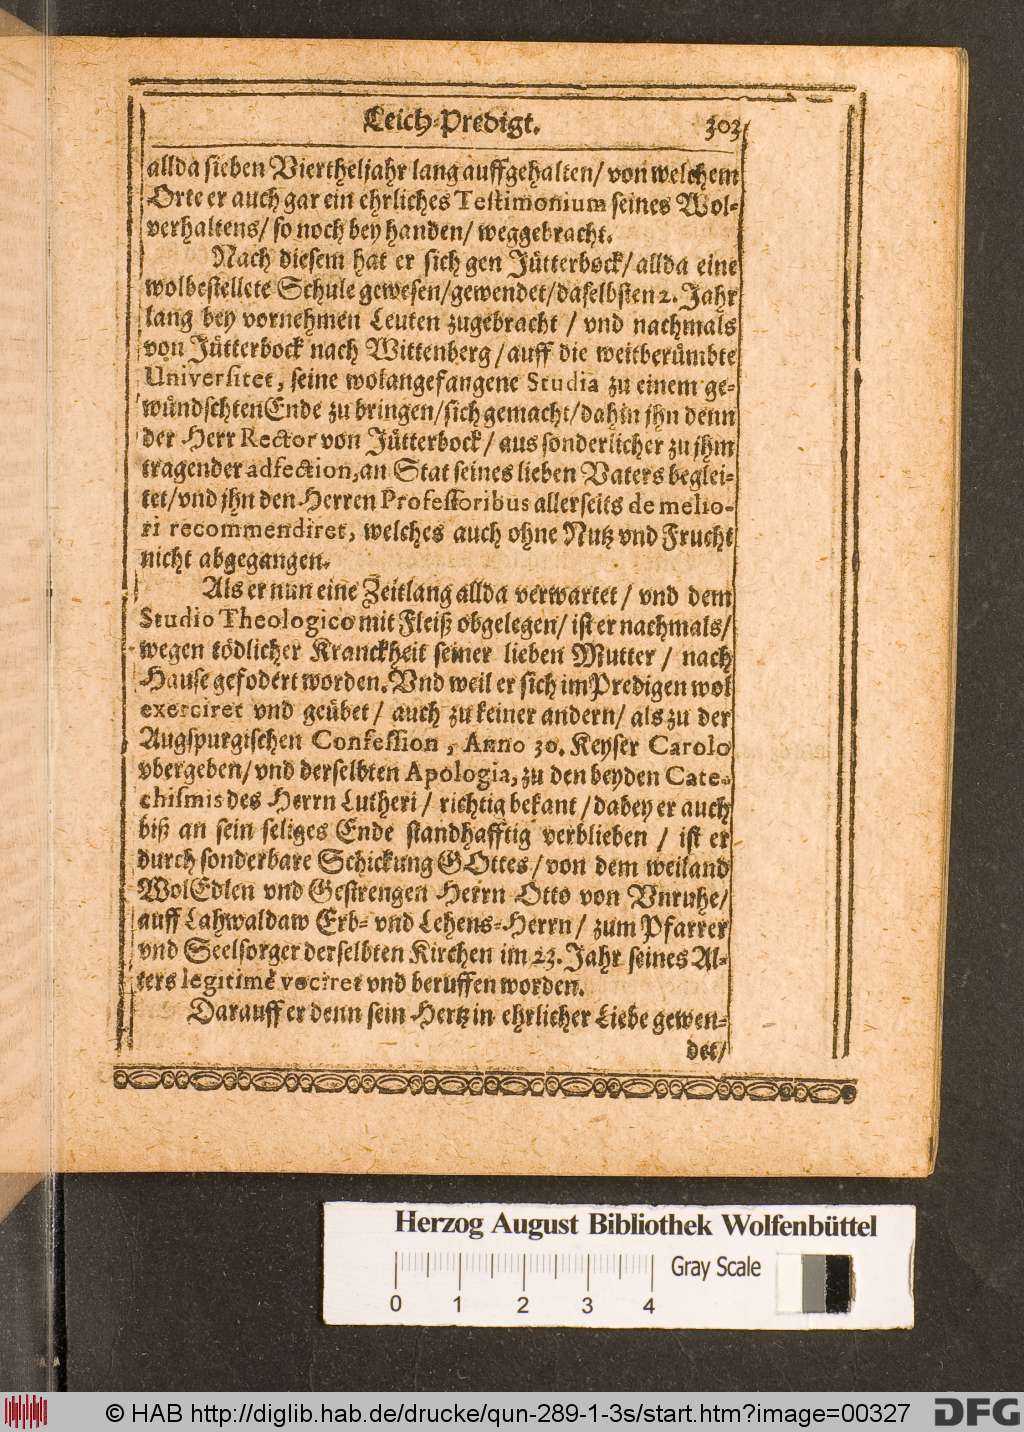 Leich-Predigt. 303
allda sieben Viertheljahr lang auffgehalten/ von welchem
Orte er auch gar ein ehrliches Testimonium seines Wol-
verhaltens/ so noch bey handen/ weggebracht.
Nach diesem hat er sich gen Jütterbock/ allda eine
wolbestellete Schule gewesen/gewendet/daselbsten 2. Jahr
lang bey vornehmen Leuten zugebracht / vnd nachmals
von Jütterbock nach Wittenberg/auff die weitberümbte
Universitet, seine wolangefangene Studia zu einem ge-
wündschten Ende zu bringen/sich gemacht/dahin jhn denn
der Herr Rector von Jütterbock/ aus sonderlicher zu jhm
tragender adfection, an Stat seines lieben Vaters beglei-
tet/vnd jhn den Herren Professoribus allerseits de melio-
ri recommendiret, welches auch ohne Nutz vnd Frucht
nicht abgegangen.
Als er nun eine Zeitlang allda verwartet / vnd dem
Studio Theologico mit Fleiß obgelegen/ ist er nachmals/
wegen tödlicher Kranckheit seiner lieben Mutter / nach
Hause gefodert worden. Vnd weil er sich im Predigen wol
exerciret vnd geübet/ auch zu keiner andern/ als zu der
Augspurgischen Confession, Anno 30. Keyser Carolo
vbergeben/ vnd derselbten Apologia, zu den beyden Cate-
chismis des Herrn Lutheri / richtig bekant / dabey er auch
biß an sein seliges Ende standhafftig verblieben / ist er
durch sonderbare Schickung GOttes/ von dem weiland
WolEdlen vnd Gestrengen Herrn Otto von Vnruhe/
auff Lahwaldaw Erb- vnd Lehens-Herrn / zum Pfarrer
vnd Seelsorger derselbten Kirchen im 23. Jahr seines Al-
ters legitimè vociret vnd beruffen worden.
Darauff er denn sein Hertz in ehrlicher Liebe gewen-
det/
Herzog August Bibliothek Wolfenbüttel
Gray Scale
0 1 2 3 4
© HAB http://diglib.hab.de/drucke/qun-289-1-3s/start.htm?image=00327 DFG